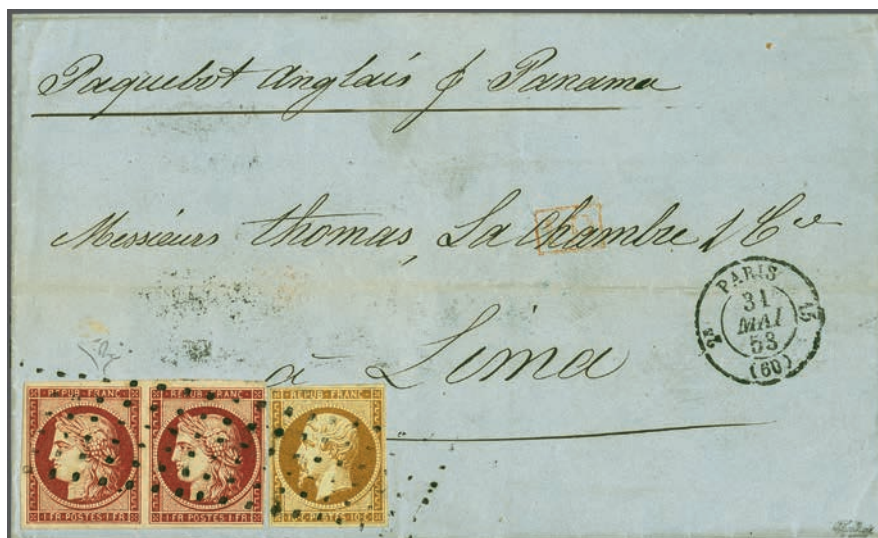 Paquebot Anglais p Panama
Messieurs Thomas, La Chambre & Cie
PARIS
31
MAI
53
(60)
à Lima
REPUB. FRANC.
REPUB. FRANC.
REPUB. FRANC.
1 FR POSTES 1 FR
1 FR POSTES 1 FR
10 C. POSTES 10 C.